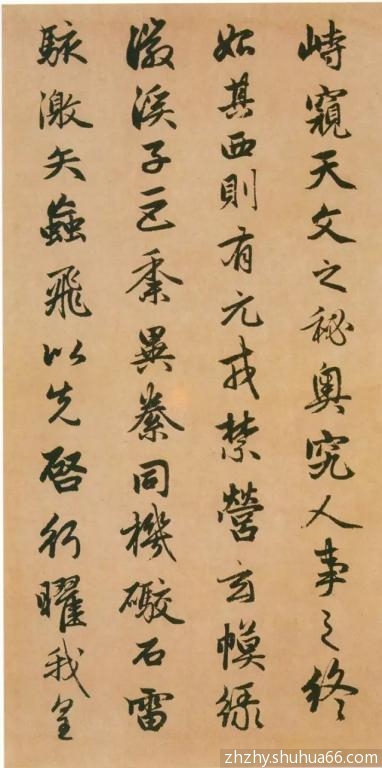 峙窺天文之秘奧究人事之終
始其西則有元戎禁營玄幙緑
徽溪子巨黍異絭同機礮石雷
駭激矢蝱飛以先啓行曜我皇
zhzhy.shuhua66.com